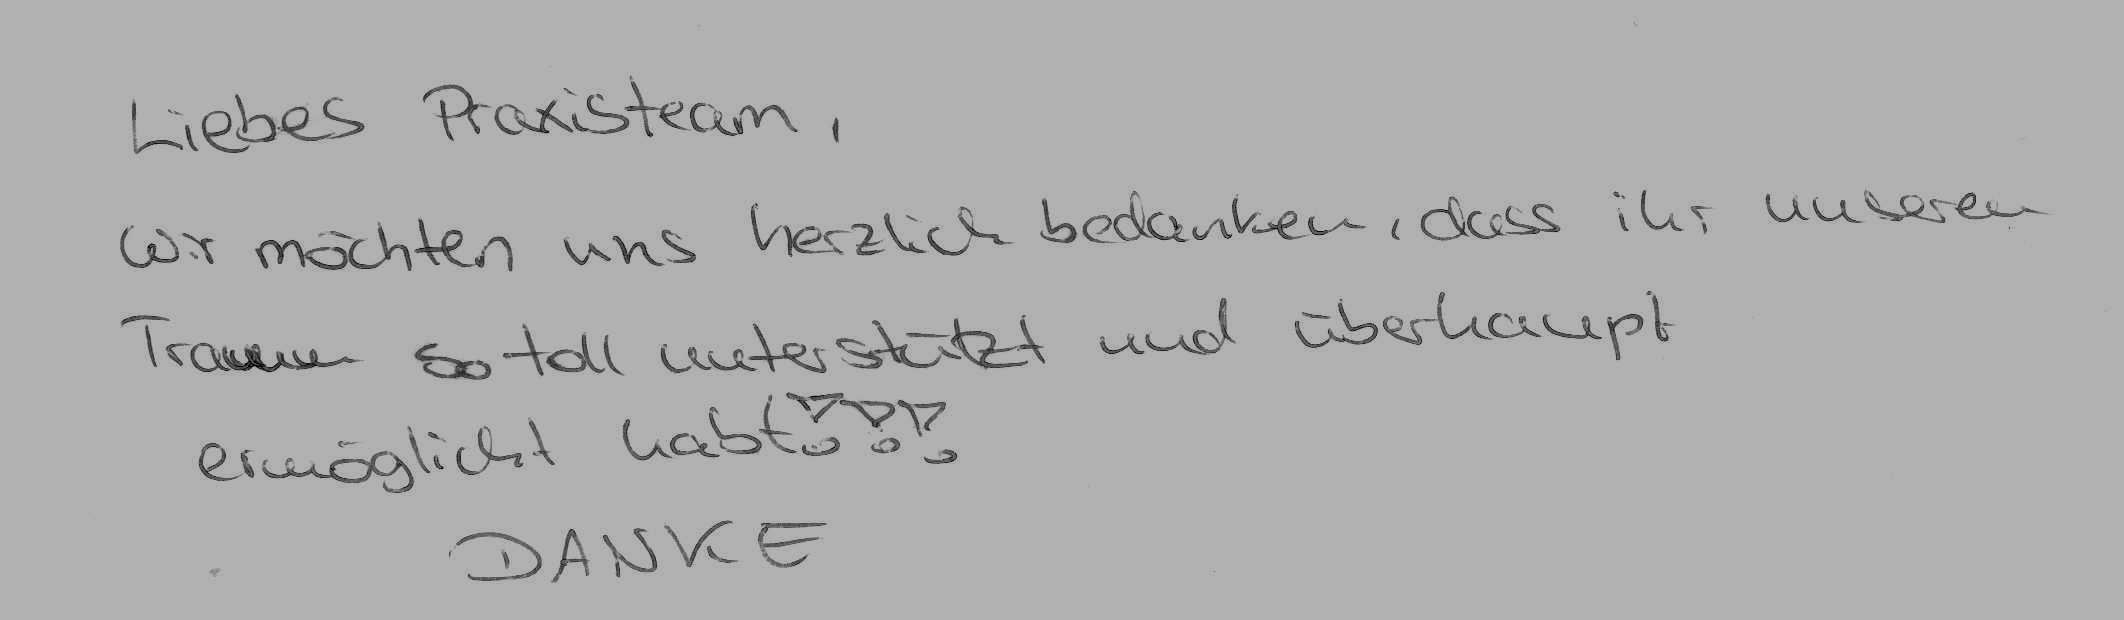 Liebes Praxisteam,
wir möchten uns herzlich bedanken, dass ihr unseren
Traum so toll unterstützt und überhaupt
ermöglicht habt!!!
DANKE